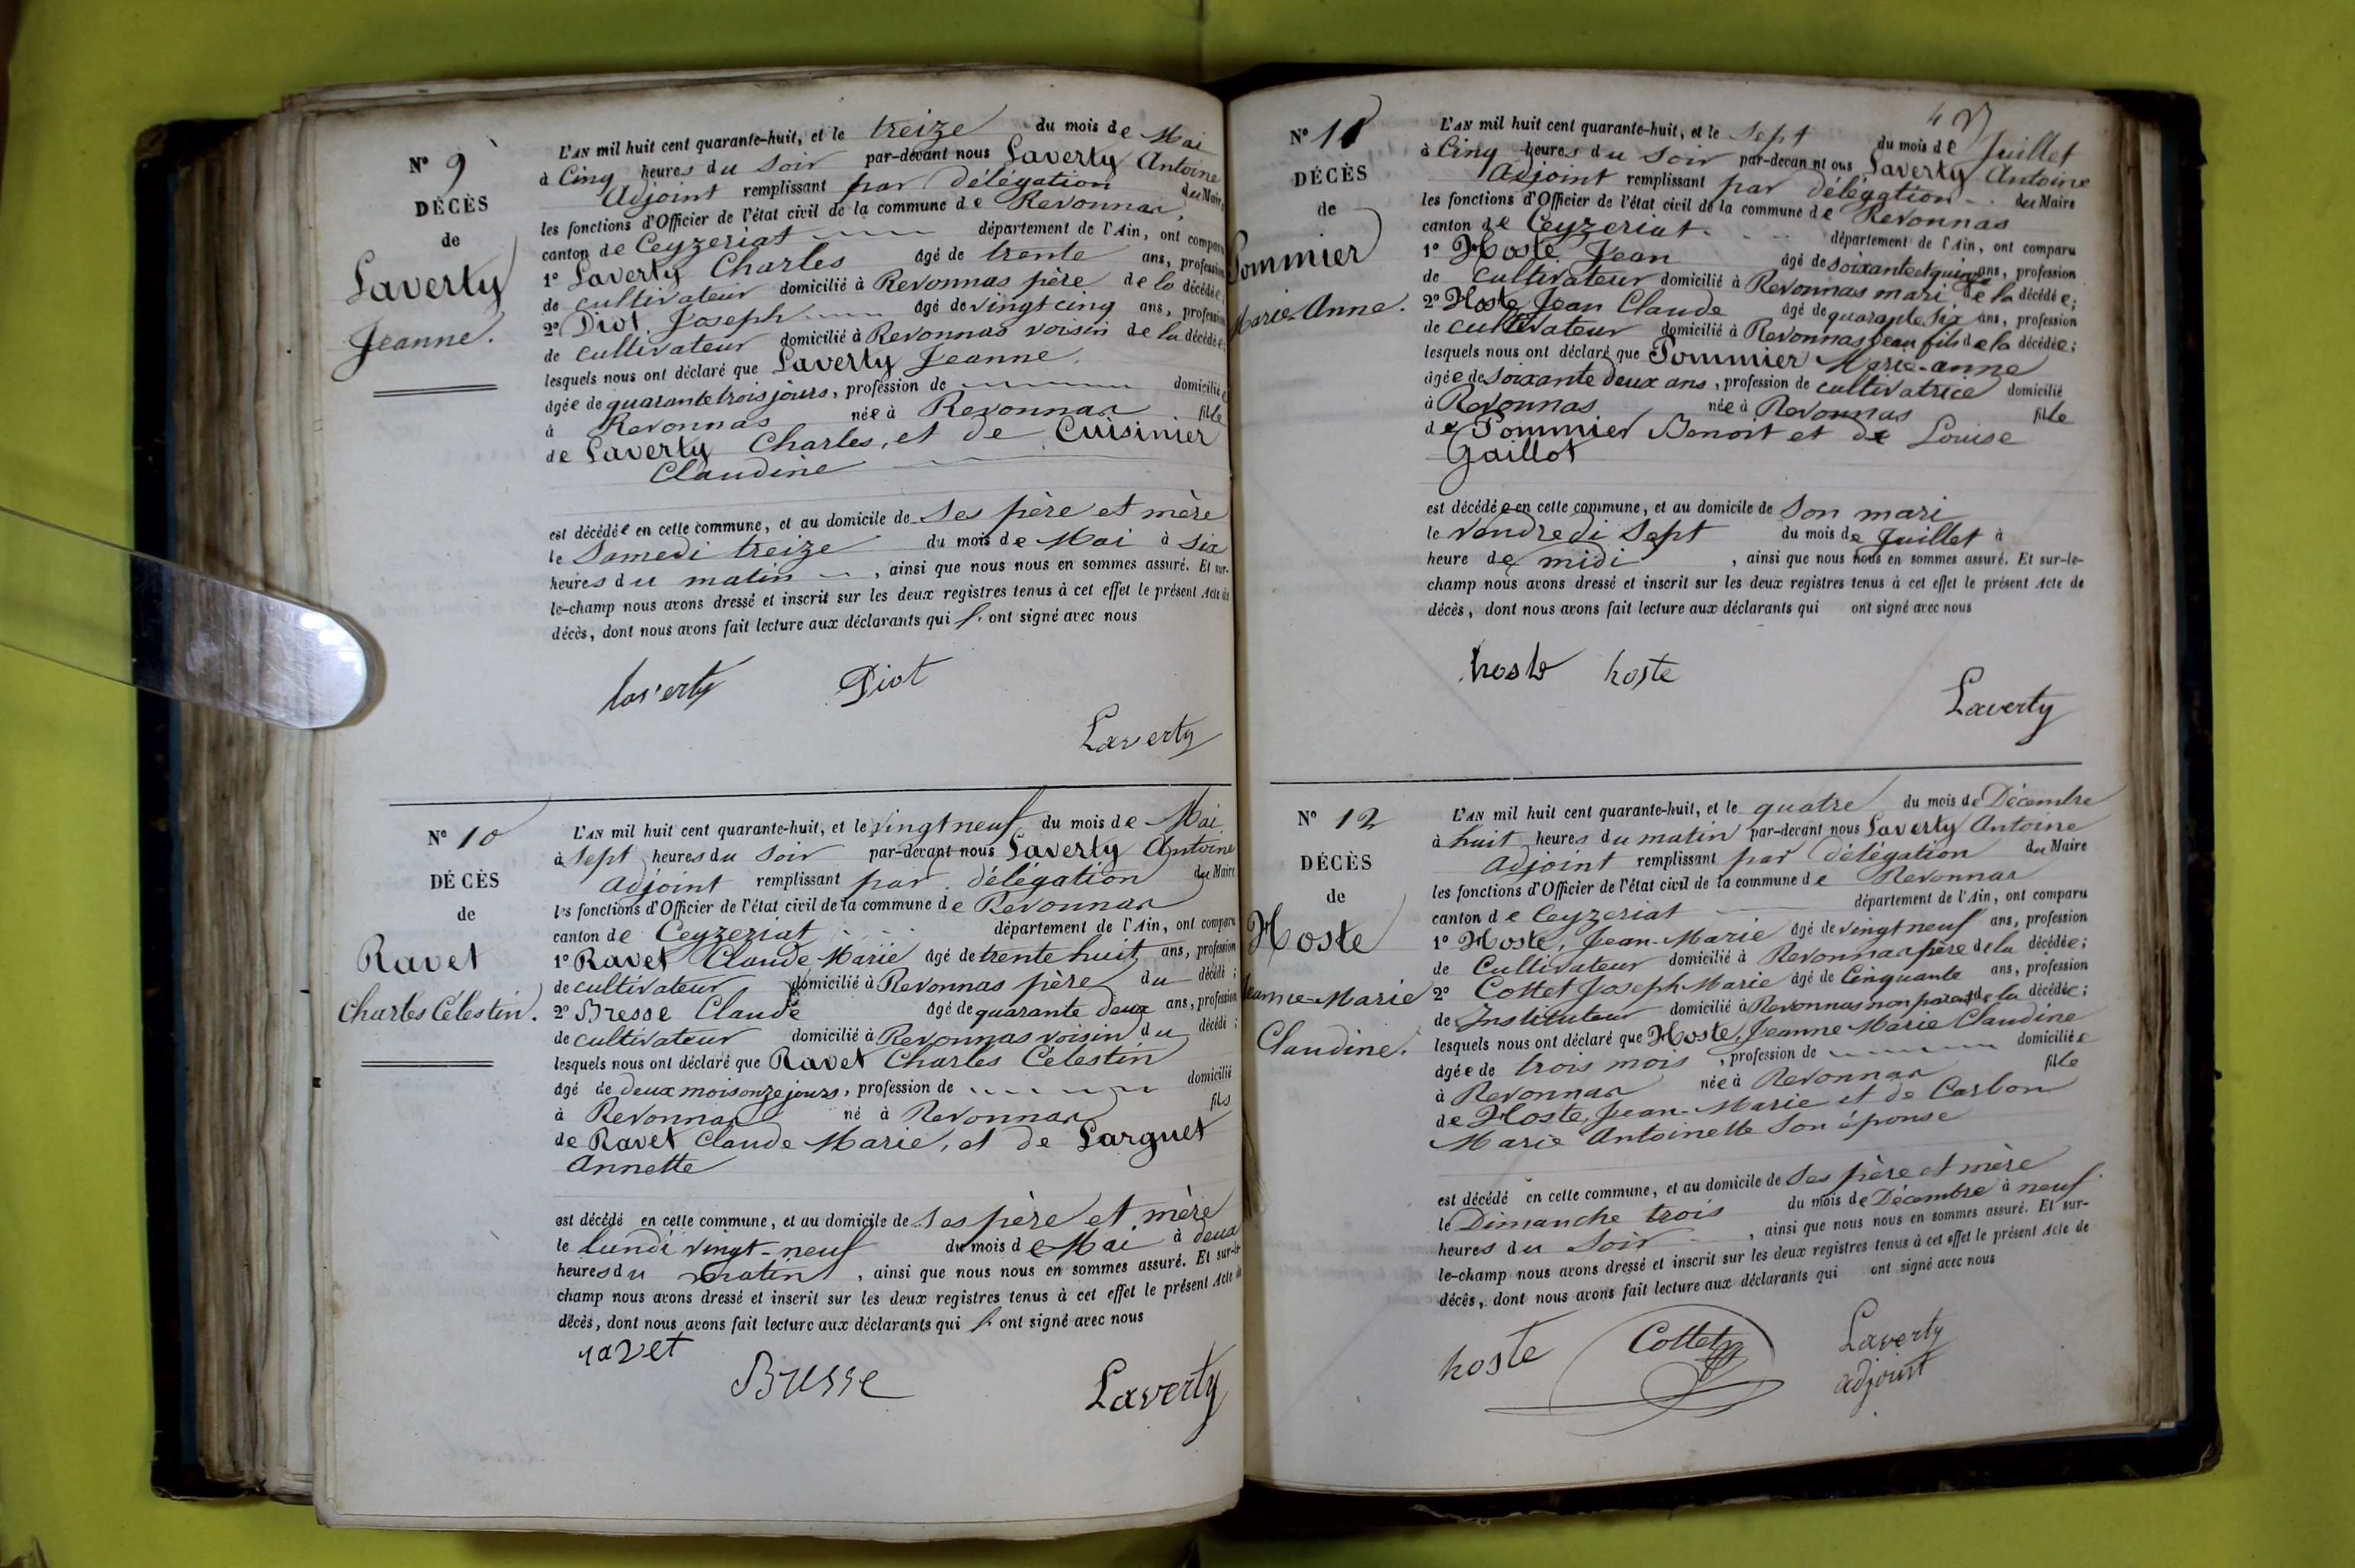 N° 9
DÉCÈS
de
Laverty
Jeanne.
L'AN mil huit cent quarante-huit, et le treize du mois de Mai
à Cinq heures du Soir par-devant nous Laverty Antoine
Adjoint remplissant par délégation du Maire
les fonctions d'Officier de l'état civil de la commune de Revonnas,
canton de Ceyzeriat département de l'Ain, ont comparu
1° Laverty Charles âgé de trente ans, profession
de cultivateur domicilié à Revonnas père de la décédée;
2° Piot Joseph âgé de vingt cinq ans, profession
de cultivateur domicilié à Revonnas voisin de la décédée;
lesquels nous ont déclaré que Laverty Jeanne,
âgée de quarante trois jours, profession de domicilié
à Revonnas née à Revonnas fille
de Laverty Charles, et de Cuisinier
Claudine
est décédée en cette commune, et au domicile de Ses père et mère
le Samedi treize du mois de Mai à Six
heures du matin, ainsi que nous nous en sommes assuré. Et sur-
le-champ nous avons dressé et inscrit sur les deux registres tenus à cet effet le présent Acte de
décès, dont nous avons fait lecture aux déclarants qui ont signé avec nous
laverty Piot
Laverty
N° 10
DÉCÈS
de
Ravet
Charles Célestin.
L'AN mil huit cent quarante-huit, et le vingt neuf du mois de Mai
à Sept heures du Soir par-devant nous Laverty Antoine
Adjoint remplissant par délégation du Maire
les fonctions d'Officier de l'état civil de la commune de Revonnas
canton de Ceyzeriat département de l'Ain, ont comparu
1° Ravet Claude Marie âgé de trente huit ans, profession
de cultivateur domicilié à Revonnas père du décédé;
2° Bresse Claude âgé de quarante deux ans, profession
de cultivateur domicilié à Revonnas voisin du décédé;
lesquels nous ont déclaré que Ravet Charles Célestin
âgé de deux mois onze jours, profession de domicilié
à Revonnas né à Revonnas fils
de Ravet Claude Marie, et de Larguet
Annette
est décédé en cette commune, et au domicile de Ses père et mère
le lundi vingt-neuf du mois de Mai à deux
heures du matin, ainsi que nous nous en sommes assuré. Et sur-le-
champ nous avons dressé et inscrit sur les deux registres tenus à cet effet le présent Acte de
décès, dont nous avons fait lecture aux déclarants qui ont signé avec nous
ravet
Bresse
Laverty
N° 11
DÉCÈS
de
Pommier
Marie-Anne.
L'AN mil huit cent quarante-huit, et le Sept du mois de Juillet
à Cinq heures du Soir par-devan nt ous Laverty Antoine
Adjoint remplissant par délégation du Maire
les fonctions d'Officier de l'état civil de la commune de Revonnas
canton de Ceyzeriat département de l'Ain, ont comparu
1° Hoste Jean âgé de soixante et quinze ans, profession
de cultivateur domicilié à Revonnas mari de la décédée;
2° Hoste Jean Claude âgé de quarante Six ans, profession
de cultivateur domicilié à Revonnas beau fils de la décédée;
lesquels nous ont déclaré que Pommier Marie-anne
âgée de Soixante deux ans, profession de cultivatrice domicilié
à Revonnas née à Revonnas fille
de Pommier Benoit et de Louise
Gaillot
est décédée en cette commune, et au domicile de Son mari
le vendredi Sept du mois de Juillet à
heure de midi, ainsi que nous nous en sommes assuré. Et sur-le-
champ nous avons dressé et inscrit sur les deux registres tenus à cet effet le présent Acte de
décès, dont nous avons fait lecture aux déclarants qui ont signé avec nous
hoste hoste
Laverty
N° 12
DÉCÈS
de
Hoste
Jeanne-Marie
Claudine.
L'AN mil huit cent quarante-huit, et le quatre du mois de Décembre
à huit heures du matin par-devant nous Laverty Antoine
Adjoint remplissant par délégation du Maire
les fonctions d'Officier de l'état civil de la commune de Revonnas
canton de Ceyzeriat département de l'Ain, ont comparu
1° Hoste, Jean-Marie âgé de vingt neuf ans, profession
de Cultivateur domicilié à Revonnas père de la décédée;
2° Cottet Joseph Marie âgé de Cinquante ans, profession
de Instituteur domicilié à Revonnas non parent de la décédée;
lesquels nous ont déclaré que Hoste, Jeanne Marie Claudine
âgée de trois mois, profession de domiciliée
à Revonnas née à Revonnas fille
de Hoste, Jean-Marie et de Carbon
Marie Antoinette Son épouse
est décédé en cette commune, et au domicile de Ses père et mère
le Dimanche trois du mois de Décembre à neuf
heures du Soir, ainsi que nous nous en sommes assuré. Et sur-
le-champ nous avons dressé et inscrit sur les deux registres tenus à cet effet le présent Acte de
décès, dont nous avons fait lecture aux déclarants qui ont signé avec nous
hoste Cottet Laverty
adjoint